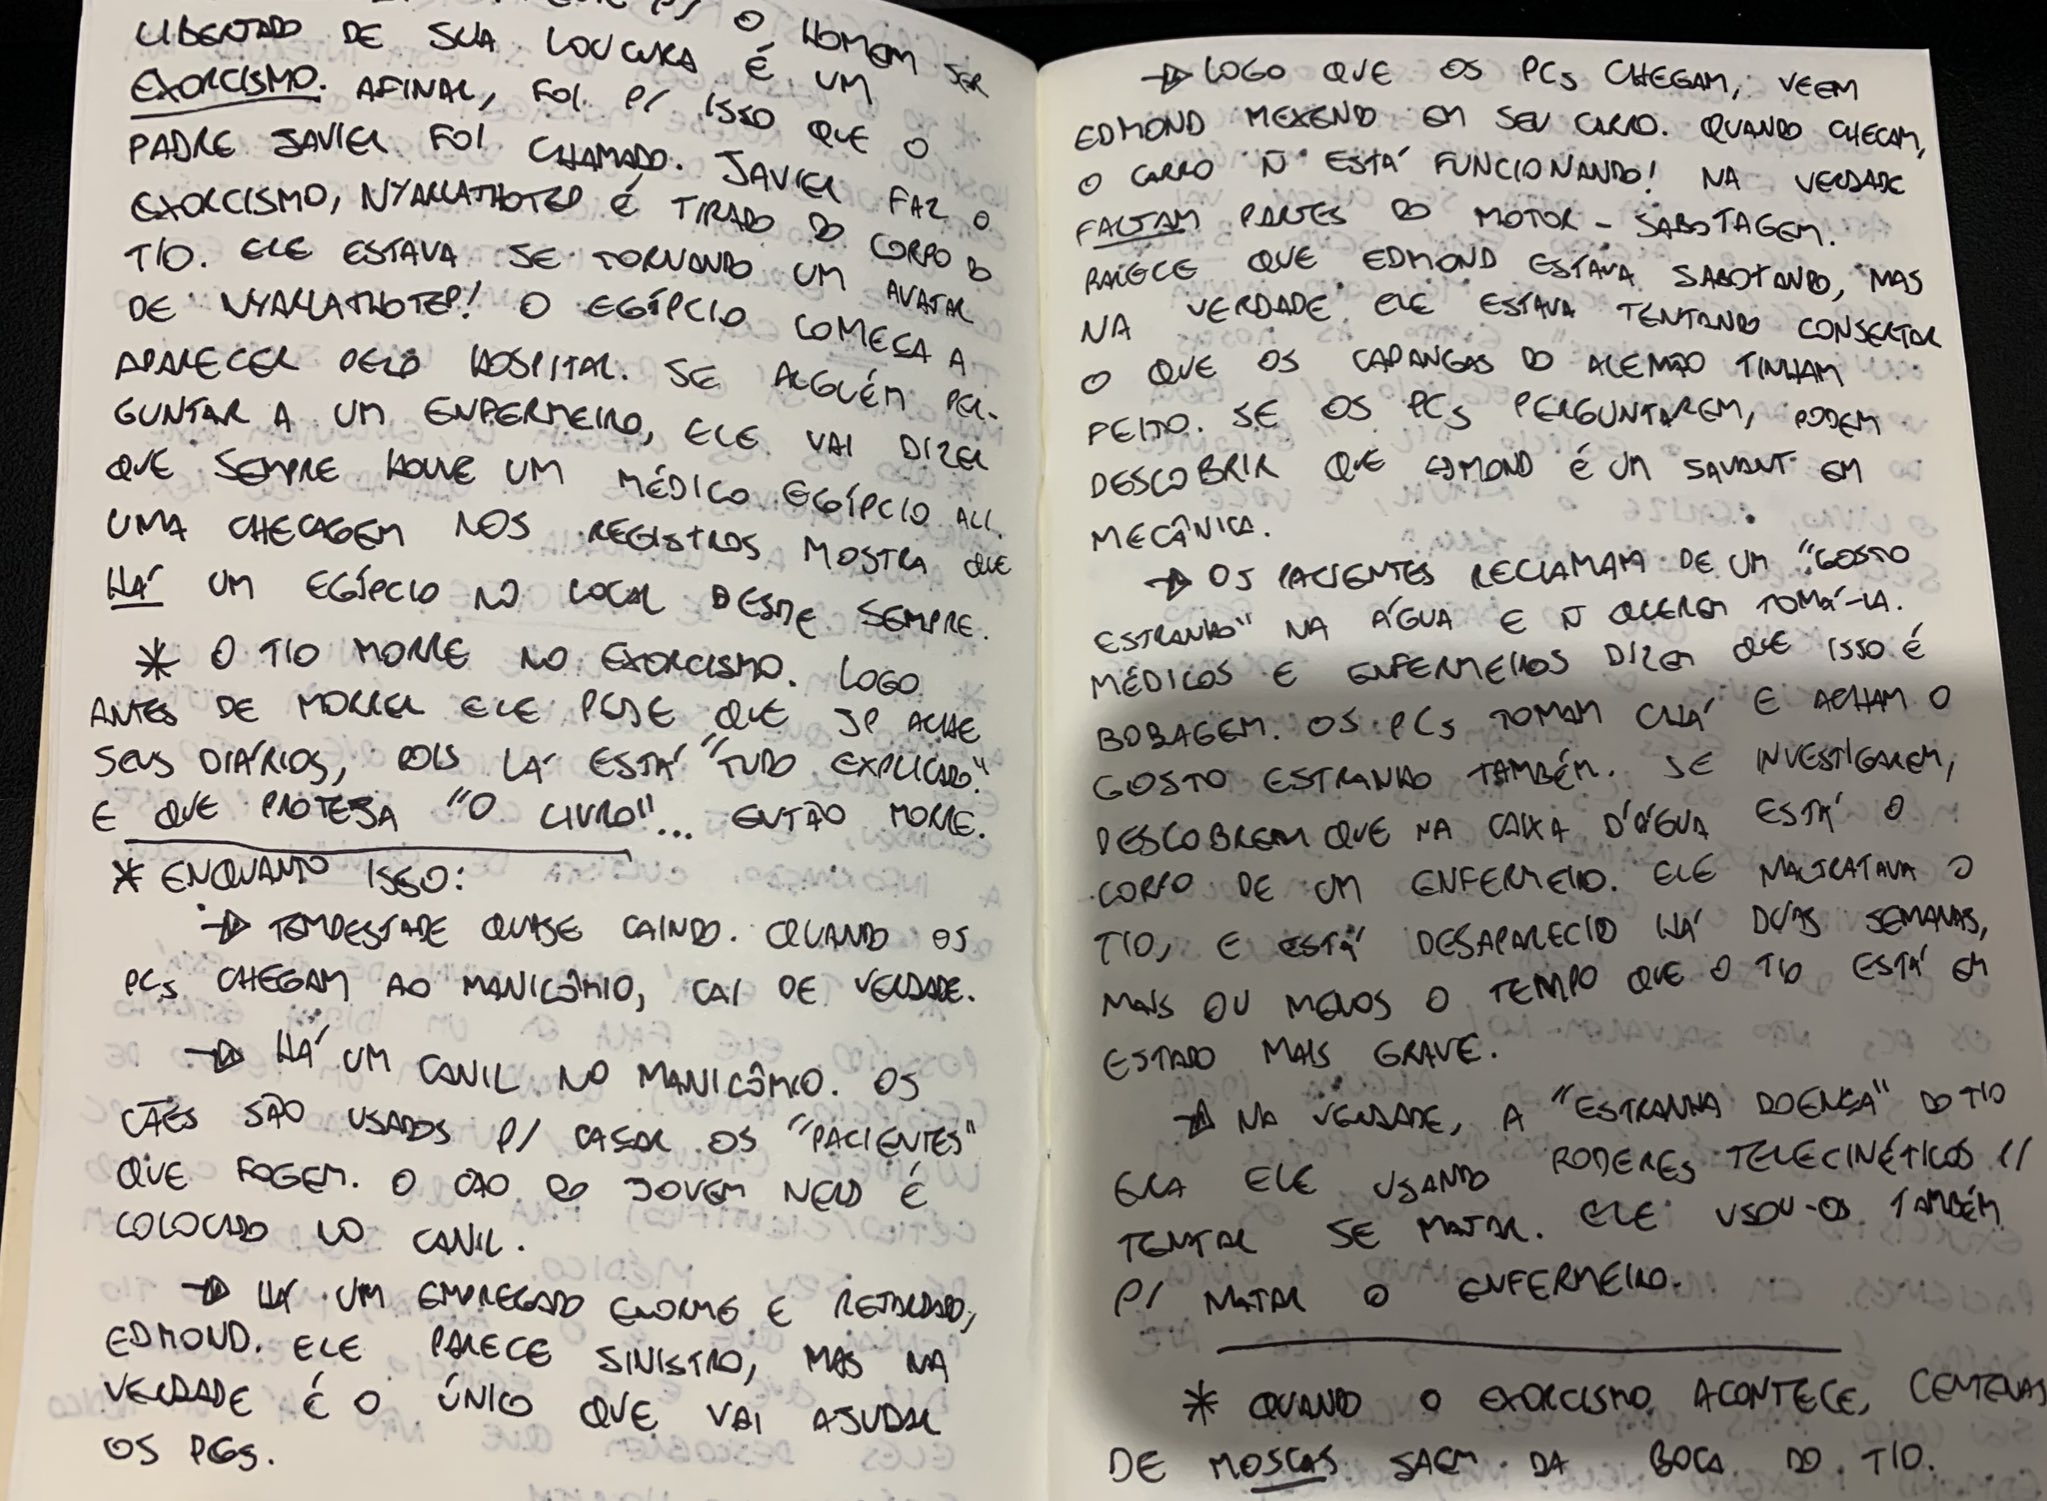 P/ O HOMEM SER
LIBERTADO DE SUA LOUCURA É UM
EXORCISMO. AFINAL, FOI P/ ISSO QUE O
PADRE JAVIER FOI CHAMADO. JAVIER FAZ O
EXORCISMO, NYARLATHOTEP É TIRADO DO CORPO DO
TIO. ELE ESTAVA SE TORNANDO UM AVATAR
DE NYARLATHOTEP! O EGÍPCIO COMEÇA A
APARECER PELO HOSPITAL. SE ALGUÉM PER-
GUNTAR A UM ENFERMEIRO, ELE VAI DIZER
QUE SEMPRE HOUVE UM MÉDICO EGÍPCIO ALI.
UMA CHECAGEM NOS REGISTROS MOSTRA QUE
HÁ UM EGÍPCIO NO LOCAL DESDE SEMPRE.
* O TIO MORRE NO EXORCISMO. LOGO
ANTES DE MORRER ELE PEDE QUE JP ACHE
SEUS DIÁRIOS, POIS LÁ ESTÁ "TUDO EXPLICADO".
E QUE PROTEJA "O LIVRO"... ENTÃO MORRE.
* ENQUANTO ISSO:
→ TEMPESTADE QUASE CAINDO. QUANDO OS
PCs CHEGAM AO MANICÔMIO, CAI DE VERDADE.
→ HÁ UM CANIL NO MANICÔMIO. OS
CÃES SÃO USADOS P/ CAÇAR OS "PACIENTES"
QUE FOGEM. O CÃO DO JOVEM NERD É
COLOCADO NO CANIL.
→ HÁ UM EMPREGADO ENORME E RETARDADO,
EDMOND. ELE PARECE SINISTRO, MAS NA
VERDADE É O ÚNICO QUE VAI AJUDAR
OS PCs.
→ LOGO QUE OS PCs CHEGAM, VEEM
EDMOND MEXENDO EM SEU CARRO. QUANDO CHECAM,
O CARRO Ñ ESTÁ FUNCIONANDO! NA VERDADE
FALTAM PARTES DO MOTOR - SABOTAGEM.
PARECE QUE EDMOND ESTAVA SABOTANDO, MAS
NA VERDADE ELE ESTAVA TENTANDO CONSERTAR
O QUE OS CAPANGAS DO ALEMÃO TINHAM
FEITO. SE OS PCs PERGUNTAREM, PODEM
DESCOBRIR QUE EDMOND É UM SAVANT EM
MECÂNICA.
→ OS PACIENTES RECLAMAM DE UM "GOSTO
ESTRANHO" NA ÁGUA E Ñ QUEREM TOMÁ-LA.
MÉDICOS E ENFERMEIROS DIZEM QUE ISSO É
BOBAGEM. OS PCs TOMAM CHÁ E ACHAM O
GOSTO ESTRANHO TAMBÉM. SE INVESTIGAREM,
DESCOBREM QUE NA CAIXA D'ÁGUA ESTÁ O
CORPO DE UM ENFERMEIRO. ELE MALTRATAVA O
TIO, E ESTÁ DESAPARECIDO HÁ DUAS SEMANAS,
MAIS OU MENOS O TEMPO QUE O TIO ESTÁ EM
ESTADO MAIS GRAVE.
→ NA VERDADE, A "ESTRANHA DOENÇA" DO TIO
ERA ELE USANDO PODERES TELECINÉTICOS P/
TENTAR SE MATAR. ELE USOU-OS TAMBÉM
P/ MATAR O ENFERMEIRO.
* QUANDO O EXORCISMO ACONTECE, CENTENAS
DE MOSCAS SAEM DA BOCA DO TIO.